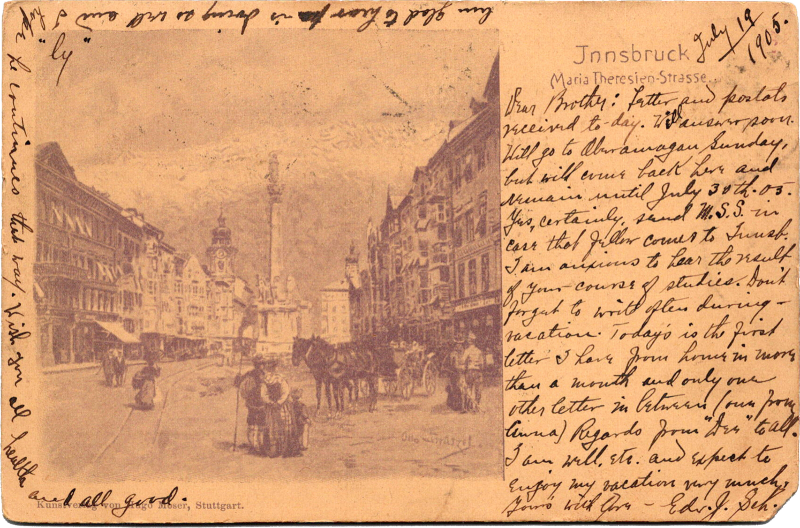 Innsbruck
Maria Theresien-Strasse.
July 19
1905.
Dear Brother: Letter and postals
received to-day. Will answer soon.
Will go to Oberamagau Sunday,
but will come back here and
remain until July 30th. 05.
Yes, certainly, send M.S.S. in
case that fellow comes to Innsb.
I am anxious to hear the result
of your course of studies. Don't
forget to write often during
vacation. Today's is the first
letter I have from home in more
than a month and only one
other letter in between (one from
Cinna) Regards from "Dee" to all.
I am well, etc. and expect to
enjoy my vacation very much.
Yours with Ave – Edw. J. Sch.
"ly"
am glad to hear pa is doing so well and I
hope
he continues that way. Wish you all health
and all good.
Kunstverlag von Hugo Moser, Stuttgart.